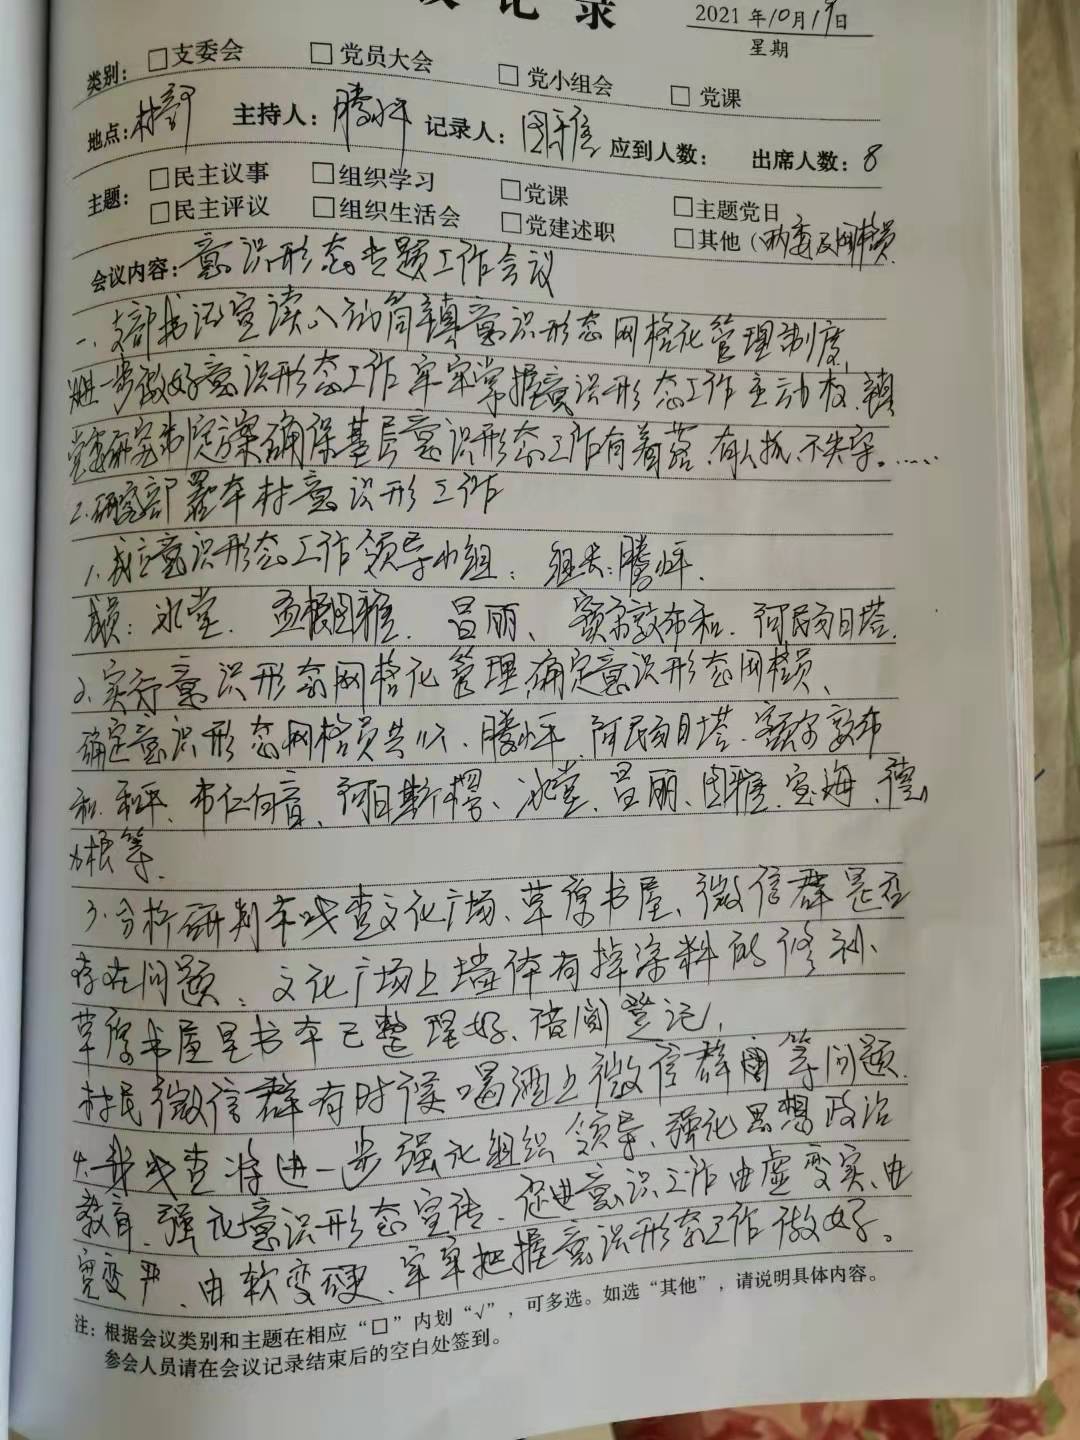 议记录
2021年10月19日
星期
类别：□支委会 □党员大会 □党小组会 □党课
地点：村部 主持人：腾小平 记录人：图雅 应到人数： 出席人数：8
主题：□民主议事 □组织学习 □党课 □主题党日
□民主评议 □组织生活会 □党建述职 □其他（两委及网格员
会议内容：意识形态专题工作会议
一、支部书记宣读 镇意识形态网格化管理制度，
进一步做好意识形态工作牢牢掌握意识形态工作主动权、镇
党委研究制定方案确保基层意识形态工作有着落、有人抓、不失守。……
2.研究部署本村意识形工作
1.成立意识形态工作领导小组： 组长：腾小平、
成员：冰堂、 图雅、 吕丽、 额尔敦布和、阿民乌日塔、
2.实行意识形态网格化管理，确定意识形态网格员、
确定意识形态网格员共11个、腾小平、阿民乌日塔、额尔敦布
和、和平、布仁白音、阿日斯楞、冰堂、吕丽、图雅、宝海、德
力根等、
3.分析研判本嘎查文化广场、草原书屋、微信群是否
存在问题、文化广场上墙体有掉涂料的修补、
草原书屋里书本已整理好、借阅登记，
村民微信群有时候喝酒上微信群闹等问题、
4.我嘎查将进一步强化组织领导、强化思想政治
教育、强化意识形态宣传、促进意识工作由虚变实、由
宽变严、由软变硬、牢牢把握意识形态工作做好。
注：根据会议类别和主题在相应“□”内划“√”，可多选。如选“其他”，请说明具体内容。
参会人员请在会议记录结束后的空白处签到。